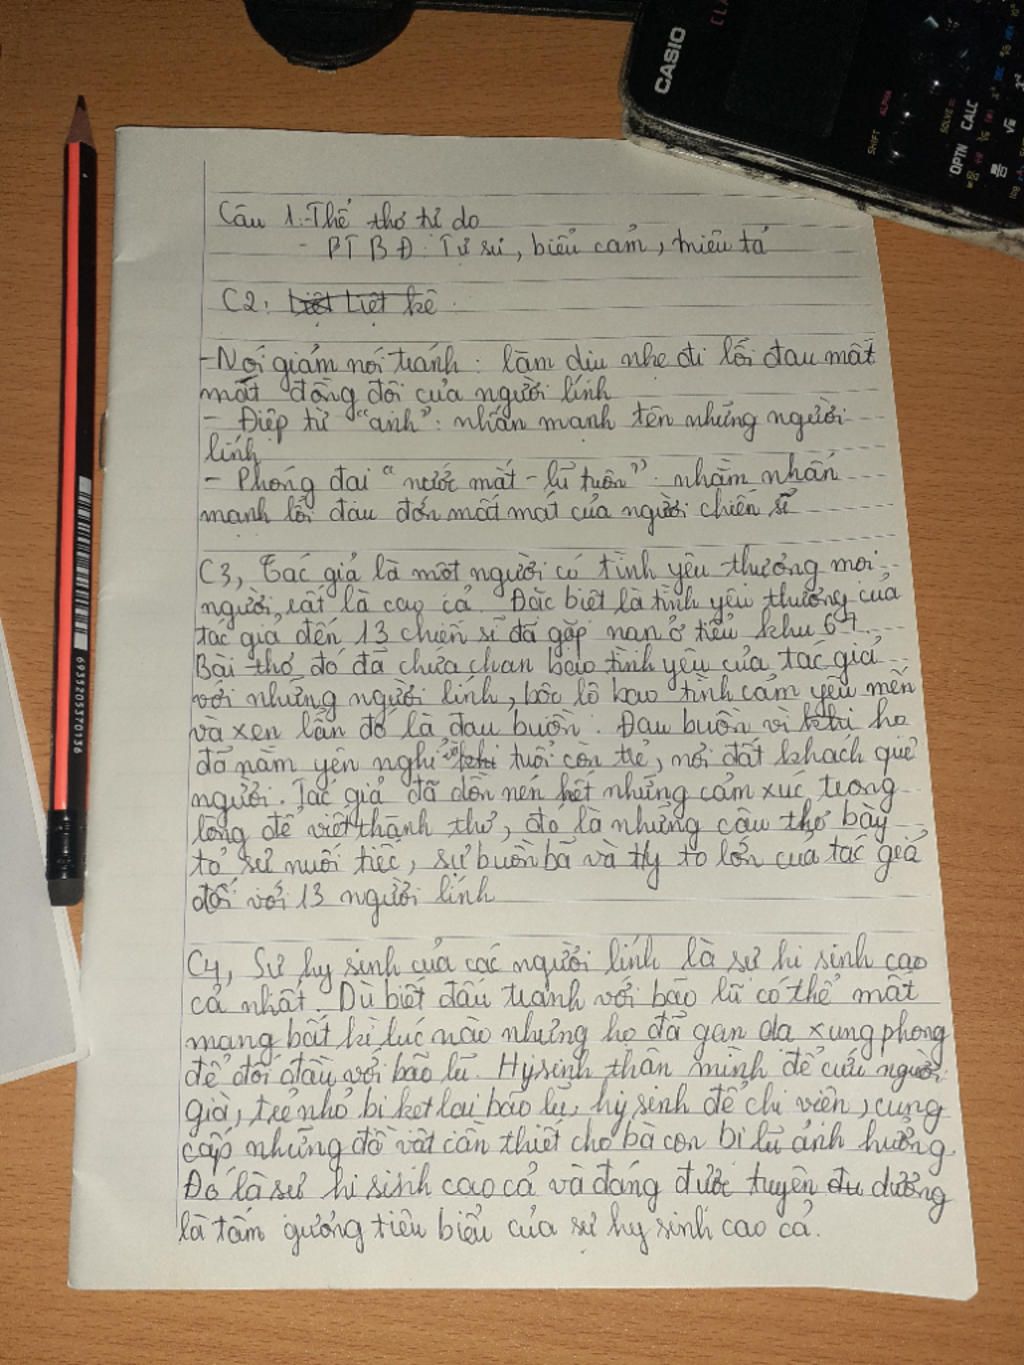 CASIO
SHIFT
ALPHA
OPTN CALC
SOLVE =
6935205370136
Câu 1:-Thể thơ tự do
- PTBĐ: Tự sự, biểu cảm, miêu tả
C2: Liệt kê
-Nói giảm nói tránh: làm dịu nhẹ đi lỗi đau mất
mát đồng đội của người lính
- Điệp từ "anh": nhấn mạnh tên những người
lính
- Phóng đại "nước mắt-lũ tuôn": nhằm nhấn
mạnh lỗi đau đớn mất mát của người chiến sĩ
C3, Tác giả là một người có tình yêu thương mọi
người, rất là cao cả. Đặc biệt là tình yêu thương của
tác giả đến 13 chiến sĩ đã gặp nạn ở tiểu khu 67.
Bài thơ đó đã chứa chan bao tình yêu của tác giả
với những người lính, bộc lộ bao tình cảm yêu mến
và xen lẫn đó là đau buồn. Đau buồn vì họ
đã nằm yên nghỉ tuổi còn trẻ, nơi đất khách quê
người. Tác giả đã dồn nén hết những cảm xúc trong
lòng để viết thành thơ, đó là những câu thơ bày
tỏ sự nuối tiếc, sự buồn bã và to lớn của tác giả
đối với 13 người lính
C4, Sự hy sinh của các người lính là sự hi sinh cao
cả nhất. Dù biết đấu tranh với bão lũ có thể mất
mạng bất kì lúc nào nhưng họ đã gan dạ xung phong
để đối đầu với bão lũ. Hy sinh thân mình để cứu người
già, trẻ nhỏ bị kẹt lại bão lũ, hy sinh để chi viện, cung
cấp những đồ vật cần thiết cho bà con bị lũ ảnh hưởng.
Đó là sự hi sinh cao cả và đáng được tuyên dương
là tấm gương tiêu biểu của sự hy sinh cao cả.